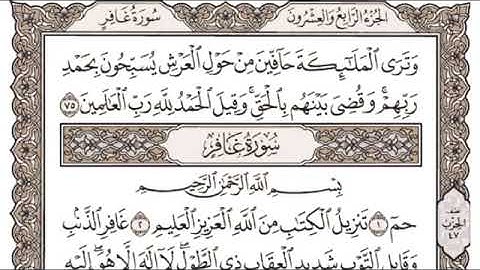 الجزء الرابع والعشرون
سورة غافر
وَتَرَى ٱلْمَلَٰٓئِكَةَ حَآفِّينَ مِنْ حَوْلِ ٱلْعَرْشِ يُسَبِّحُونَ بِحَمْدِ
رَبِّهِمْ ۖ وَقُضِىَ بَيْنَهُم بِٱلْحَقِّ وَقِيلَ ٱلْحَمْدُ لِلَّهِ رَبِّ ٱلْعَٰلَمِينَ ٧٥
سورة غافر
بِسْمِ ٱللَّهِ ٱلرَّحْمَٰنِ ٱلرَّحِيمِ
حمٓ ١ تَنزِيلُ ٱلْكِتَٰبِ مِنَ ٱللَّهِ ٱلْعَزِيزِ ٱلْعَلِيمِ ٢ غَافِرِ ٱلذَّنۢبِ
وَقَابِلِ ٱلتَّوْبِ شَدِيدِ ٱلْعِقَابِ ذِى ٱلطَّوْلِ ۖ لَآ إِلَٰهَ إِلَّا هُوَ ۖ إِلَيْهِ
الحزب
٤٧